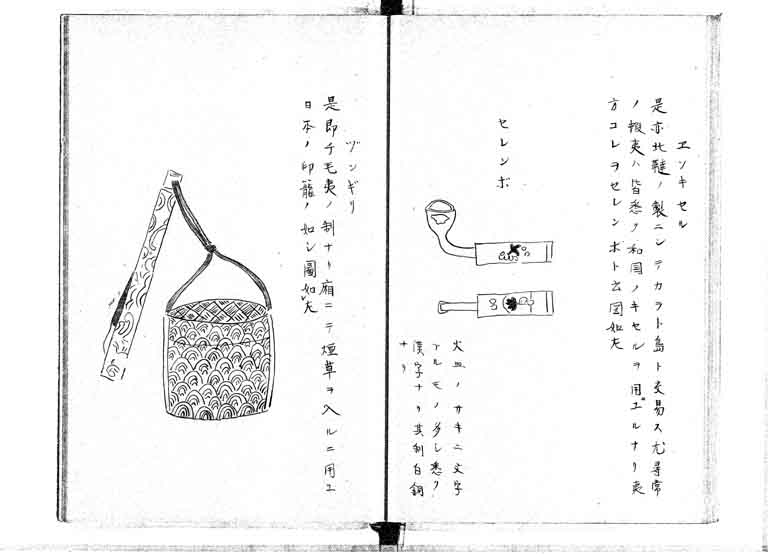 ヱソキセル
是亦北韃ノ製ニシテカラト島ト交易ス尤尋常
ノ蝦夷ハ皆悉ク和国ノキセルヲ用ヱルナリ夷
方コレヲセレンボト云図如左
セレンボ
火皿ノサキニ文字
アルモノ多シ悉ク
漢字ナリ其制白銅
ナリ
ヅンギリ
是即チ毛夷ノ制ナリ廟ニテ烟草ヲ入ルニ用ヱ
日本ノ印籠ノ如シ圖如左